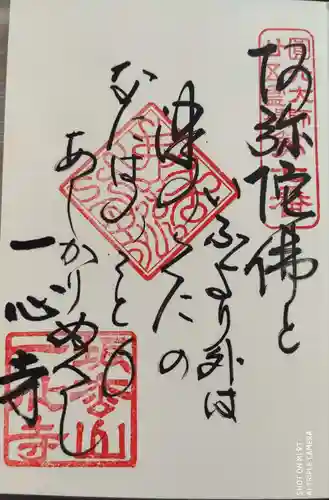 阿弥陀佛と
いふより外は
津のくにの
なにはのことも
あしかりぬべし
一心寺
坂松山
一心寺
SHOT ON MI 9T
AI TRIPLE CAMERA